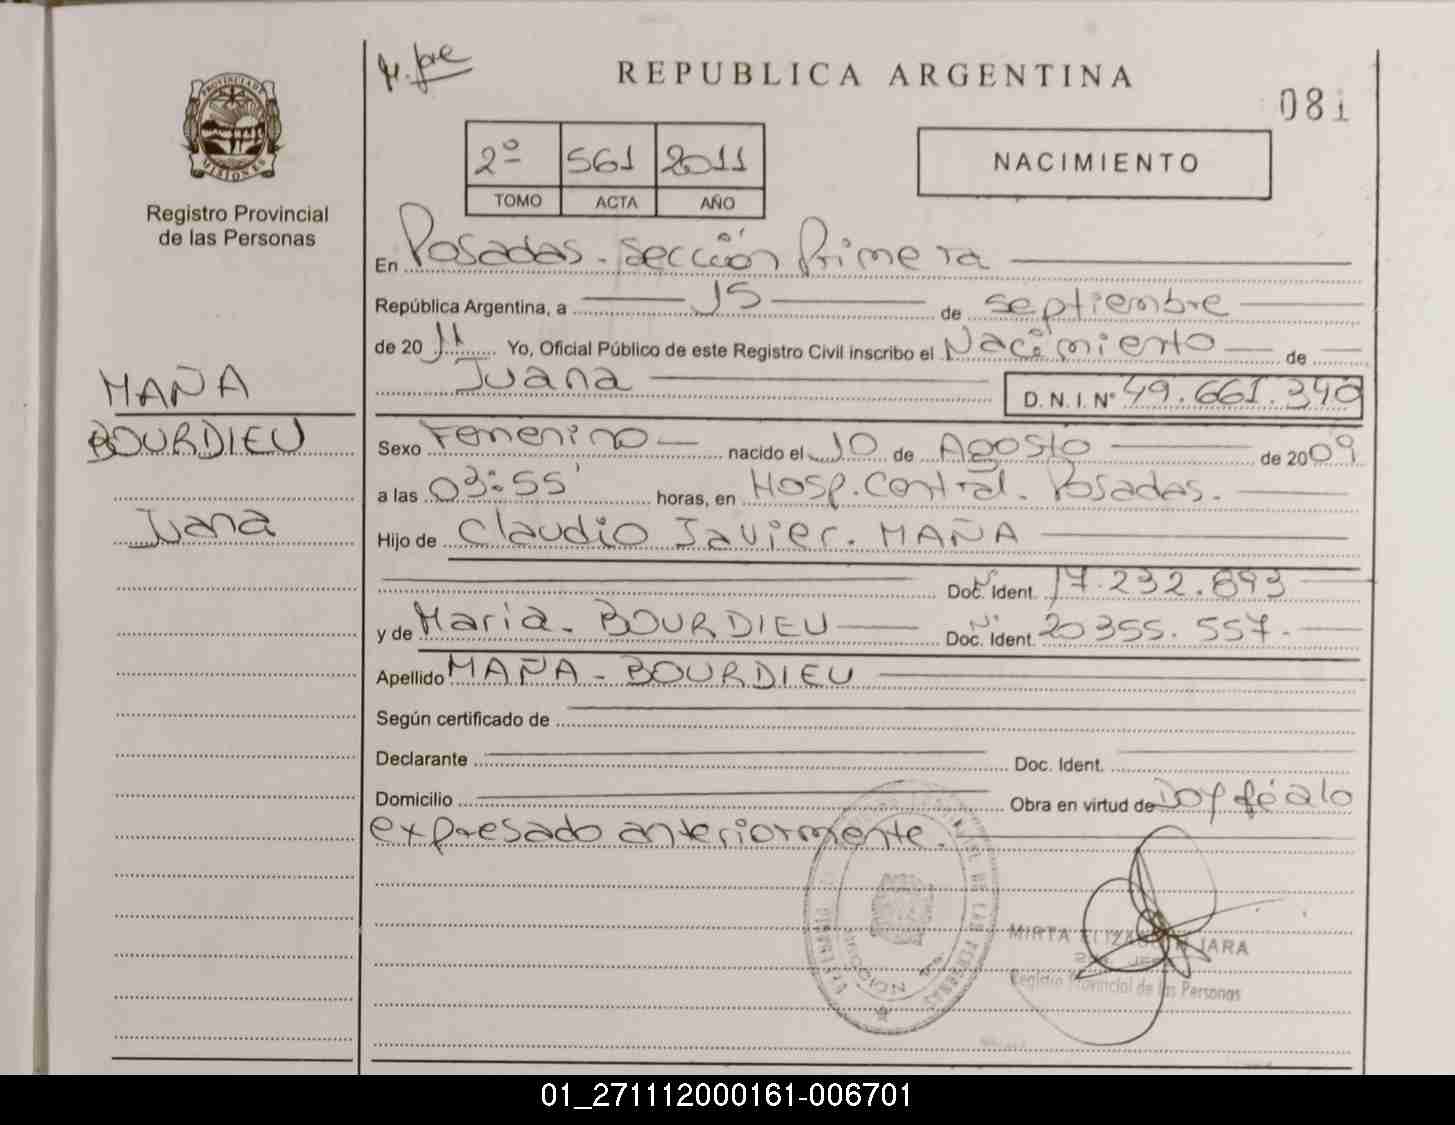 M. Jre
REPUBLICA ARGENTINA
081
PROVINCIA DE MISIONES
Registro Provincial
de las Personas
2º 561 2011
TOMO ACTA AÑO
NACIMIENTO
En Posadas - Sección Primera
República Argentina, a 15 de septiembre
de 2011 Yo, Oficial Público de este Registro Civil inscribo el Nacimiento de
Juana
D. N. I. Nº 49.661.340
MAÑA
BOURDIEU
Juana
Sexo Femenino nacido el 10 de Agosto de 2009
a las 03:55' horas, en Hosp. Central. Posadas.
Hijo de Claudio Javier. MAÑA
Doc. Ident. 17.232.893
y de Maria - BOURDIEU Doc. Ident. 20355.557.-
Apellido MAÑA - BOURDIEU
Según certificado de
Declarante Doc. Ident.
Domicilio Obra en virtud de
expresado anteriormente.
MIRTA ELIZABETH JARA
Registro Provincial de las Personas
01_271112000161-006701